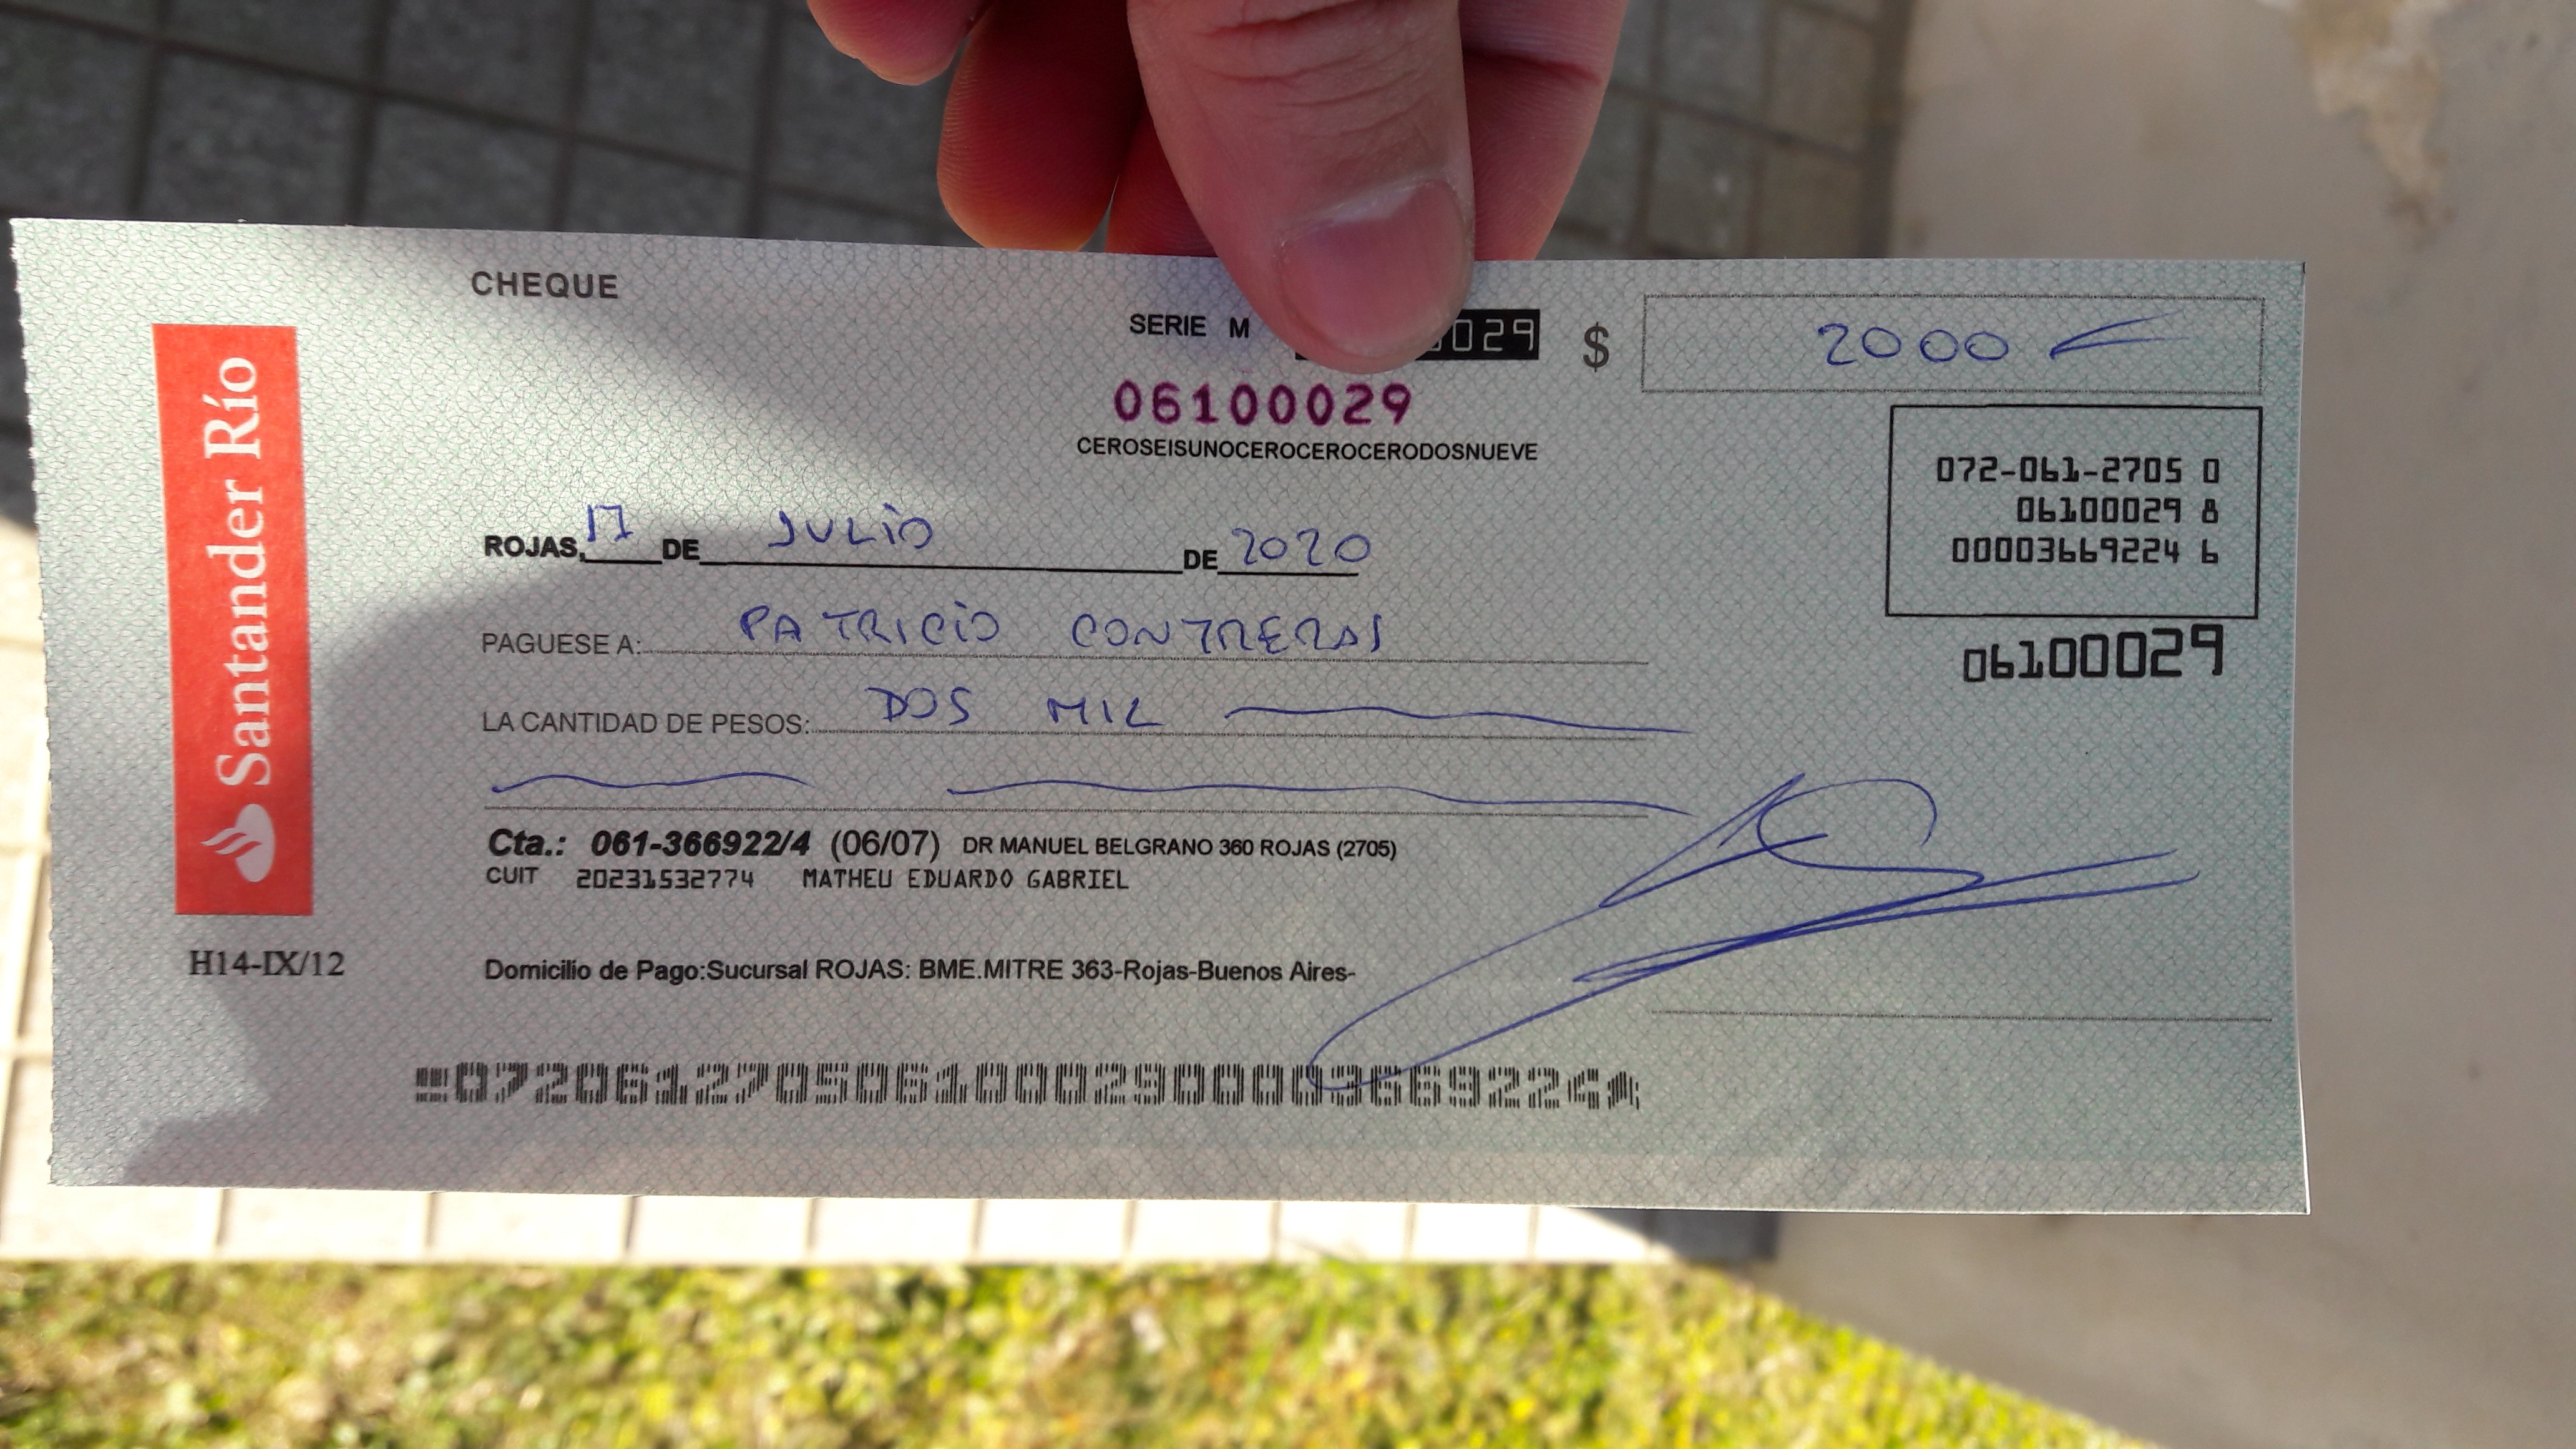 CHEQUE
SERIE M 029 $ 2000
06100029
CEROSEISUNOCEROCEROCERODOSNUEVE
072-061-2705 0
06100029 8
00003669224 6
06100029
Santander Río
ROJAS, 17 DE JULIO DE 2020
PAGUESE A: PATRICIO CONTRERAS
LA CANTIDAD DE PESOS: DOS MIL
Cta.: 061-366922/4 (06/07) DR MANUEL BELGRANO 360 ROJAS (2705)
CUIT 20231532774 MATHEU EDUARDO GABRIEL
H14-IX/12
Domicilio de Pago:Sucursal ROJAS: BME.MITRE 363-Rojas-Buenos Aires-
07206127050610002900003669224